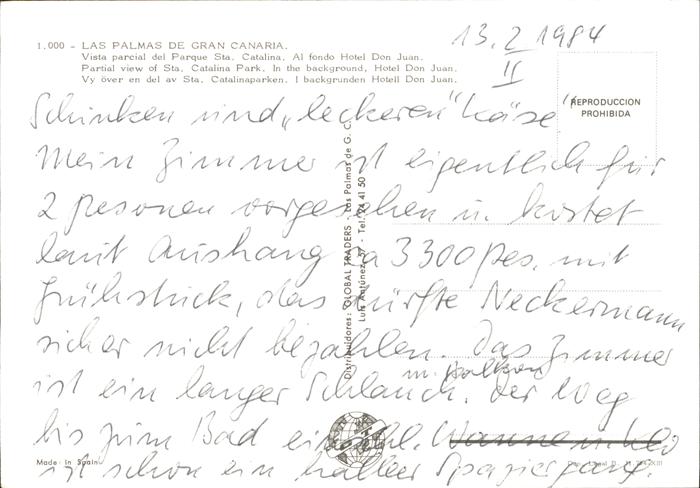 13.2.1984
II
1.000 - LAS PALMAS DE GRAN CANARIA.
Vista parcial del Parque Sta. Catalina. Al fondo Hotel Don Juan.
Partial view of Sta. Catalina Park. In the background, Hotel Don Juan.
Vy över en del av Sta. Catalinaparken. I bakgrunden Hotell Don Juan.
REPRODUCCION
PROHIBIDA
Schinken und „leckeren“ Käse
Mein Zimmer ist eigentlich für
2 Pesonen vorgesehen u. kostet
laut Aushang ca 3300 Pes. mit
Frühstück, das dürfte Neckermann
sicher nicht bezahlen. Das Zimmer
m. Balkon
ist ein langer Schlauch. Der Weg
bis zum Bad
ist schon ein halber Spaziergang.
Distribuidores: GLOBAL TRADERS - Las Palmas de G. C.
Luis Antúnez, 57 - Tel. 24 41 50
Made in Spain